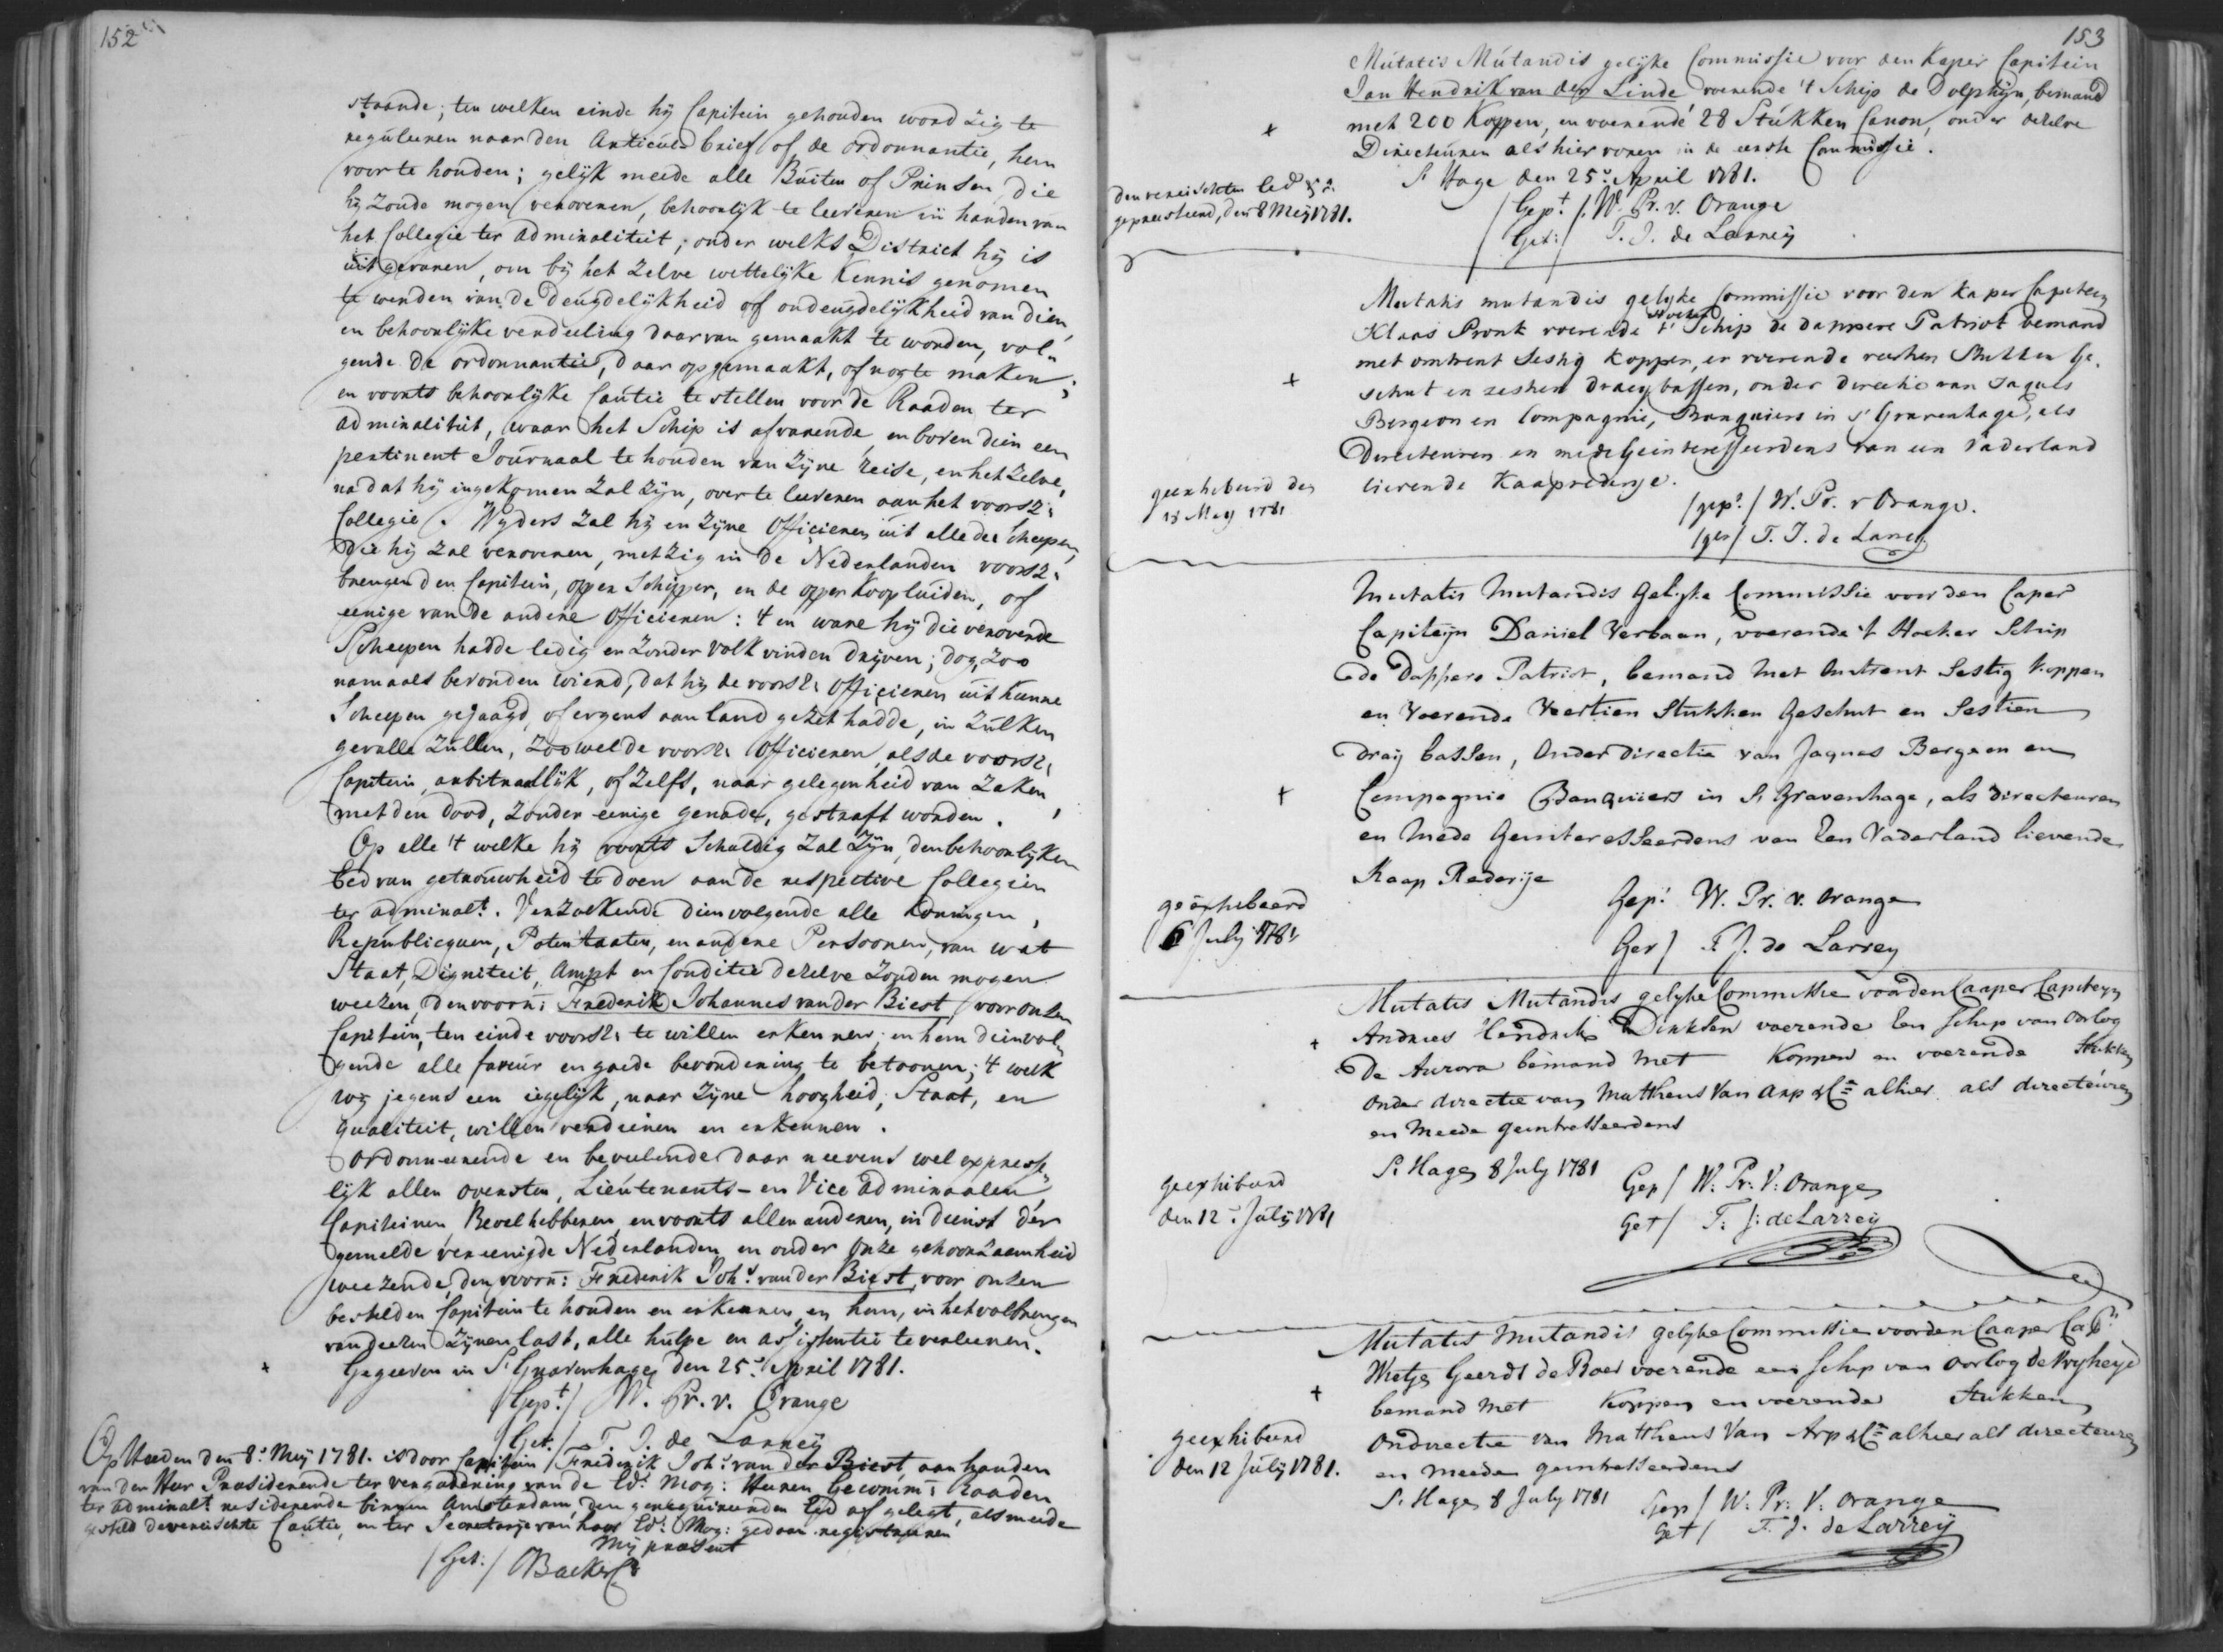 152
staande; ten welken einde hij Capitein gehouden word zig te
reguleeren naar den Articul brief of de ordonnantie, hem
voor te houden; gelijk meede alle Buiten of Prinsen die
hij zoude mogen veroveren, behoorlijk te leeveren in handen van
het Collegie ter admiraliteit, onder welks District hij is
uitgevaren, om bij het zelve wettelijke Kennis genomen
te worden van de deugdelijkheid of ondeugdelijkheid van dien,
en behoorlijke verdeeling daar van gemaakt te worden, vol„
gende de ordonnantie, daar op gemaakt, of nog te maken;
en voorts behoorlijke Cautie te stellen voor de Raaden ter
admiraliteit, waar het Schip is afvarende, en boven dien een
pertinent Journaal te houden van Zijne reise, en het zelve,
na dat hij ingekomen zal zijn, over te leeveren aan het voorsz:
Collegie. Wyders zal hij en zijne Officieren uit alle de Scheepen,
die hij zal veroveren, met zig in de Nederlanden voorsz:
brengen den Capitein, opper Schipper, en de opper Koopluiden, of
eenige van de andere officieren: 't en ware hij die veroverde
Scheepen hadde ledig en zonder volk vinden drijven; dog, zoo
namaals bevonden wierd, dat hij de voorsz: officieren uit hunne
Scheepen gejaagd, of ergens aan land gezet hadde, in zulken
gevalle zullen, zoo wel de voorsz: Officieren, als de voorsz:
Capitein, arbitraallijk, of zelfs, naar gelegenheid van zaken,
met den dood, zonder eenige genade, gestraft worden.
Op alle 't welke hij voorts Schuldig zal zijn, den behoorlijken
Eed van getrouwheid te doen aan de respective Collegien
ter admiralt. Verzoekende dien volgende alle Koningen,
Republicquen, Potentaaten, en andere Persoonen, van wat
Staat, Digniteit, Ampt en Conditie dezelve zouden mogen
weezen, den voorn: Frederik Johannes van der Biest, voor onzen
Capitein, ten einde voorsz: te willen erkennen; en hem dienvol„
gende alle faveur en goede bevordering te betoonen; 't welk
wij jegens een iegelijk, naar zijne hoogheid, Staat, en
qualiteit, willen verdienen en erkennen.
Ordonneerende en beveelende daar neevens wel expresse„
lijk allen oversten, Lieutenants- en Vice admiraalen
Capiteinen, Bevelhebberen, en voorts allen anderen, in dienst der
gemelde vereenigde Nederlanden en onder Onze gehoorzaamheid
weezende, den voorn: Frederik Johs van der Biest, voor onzen
bestelden Capitein te houden en erkennen, en hem, in het volbrengen
van deezen zijnen last, alle hulpe en assistentie te verleenen.
+ Gegeeven in S'Gravenhage, den 25e April 1781.
/Gept/ W. Pr. v. Orange
/Get./ T. J. de Larreij
Op Heeden den 8e Meij 1781. is door Capitein Frederik Johs van der Biest, aan handen
van den Heer Præsiderende ter vergadering van de Ed: Mog: Heeren Gecomm: Raaden
ter admiralt resideerende binnen Amsterdam, den gerequireerden Eed af gelegt, als meede
gesteld de vereischte Cautie, en ter Secretarije van haar Ed: Mog: gedaan registreeren
Mij præsent
/Get./ Backer
153
Mutatis Mutandis gelijke Commissie voor den Kaper Capitein
Jan Hendrik van der Linde voerende 't Schip de Dolphijn, bemand
met 200 Koppen, en voerende 28 Stukken Canon, onder dezelve
+
Directeuren als hier voren in de eerste Commissie.
S' Hage den 25e April 1781.
den vereischten Eed
gepresteerd, den 8 Meij 1781.
/Gept./ W. Pr. v. Orange
/Get:/ T. J. de Larreij
Mutatis mutandis gelyke Commissie voor den Kaper Capitein
Klaas Pronk voerende 't Hoeker Schip de dappere Patriot bemand
met omtrent Sestig Koppen, en voerende veertien Stukken Ge„
+
schut en zestien draeybassen, onder directie van Jaques
Bergeon en Compagnie, Banquiers in s' Gravenhage, als
Directeuren en mede Geinteresseerdens van een Vaderland
lievende Kaaprederije.
geexhibeerd den
15 Mey 1781
/gept/ W. Pr. v Orange.
/get/ T. J. de Larrey
Mutatis Mutandis Gelijke Commissie voor den Caper
Capiteijn Daniel Verbaan, voerende 't Hoeker Schip
de Dappere Patriot, bemand met Omtrent Sestig Koppen
en Voerende Veertien Stukken Geschut en Sestien
draij bassen, Onder directie van Jaques Bergeon en
+
Compagnie Banquiers in S' Gravenhage, als Directeuren
en Mede Geinteresseerdens van Een Vaderland lievende
Kaap Rederije
geëxhibeerd
6 July 1781
Gept W. Pr. v. Orange
Get/ T. J. de Larrey
Mutatis Mutandis gelyke Commissie voor den Caaper Capiteyn
+
Andries Hendriks Dirksen voerende Een Schip van Oorlog
De Aurora bemand met Koppen en voerende Stukken
Onder directie van Mattheus Van Arp & Ce alhier als directeuren
en Meede geintresseerdens
S. Hage 8 July 1781
geexhibeerd
den 12e July 1781
Gep/ W: Pr: V: Orange
Get/ T: J: de Larreij
Mutatis Mutandis gelyke Commissie voor den Caaper Capn
Wietje Geerdt de Boer voerende een Schip van Oorlog de Vryheyd
+
bemand Met Koppen en voerende Stukken
Ondirectie van Mattheus Van Arp & Ce alhier als directeuren
en Meede geintresseerdens
geexhibeerd
den 12 July 1781.
S. Hage 8 July 1781
Gep/ W: Pr: V: Orange
Get/ T. J. de Larreij